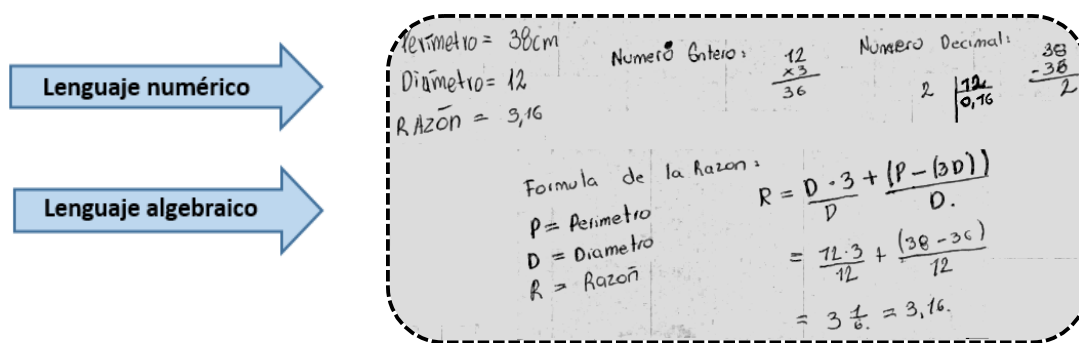 Lenguaje numérico
Lenguaje algebraico
Perímetro = 38cm
Diámetro = 12
RAzón = 3,16
Numero Entero:
12
x3
36
Número Decimal:
2 12
0,16
38
-36
2
Formula de la Razon:
P = Perimetro
D = Diametro
R = Razon
R = D · 3 / D + (P - (3D)) / D.
= 12·3 / 12 + (38 - 36) / 12
= 3 1/6. = 3,16.